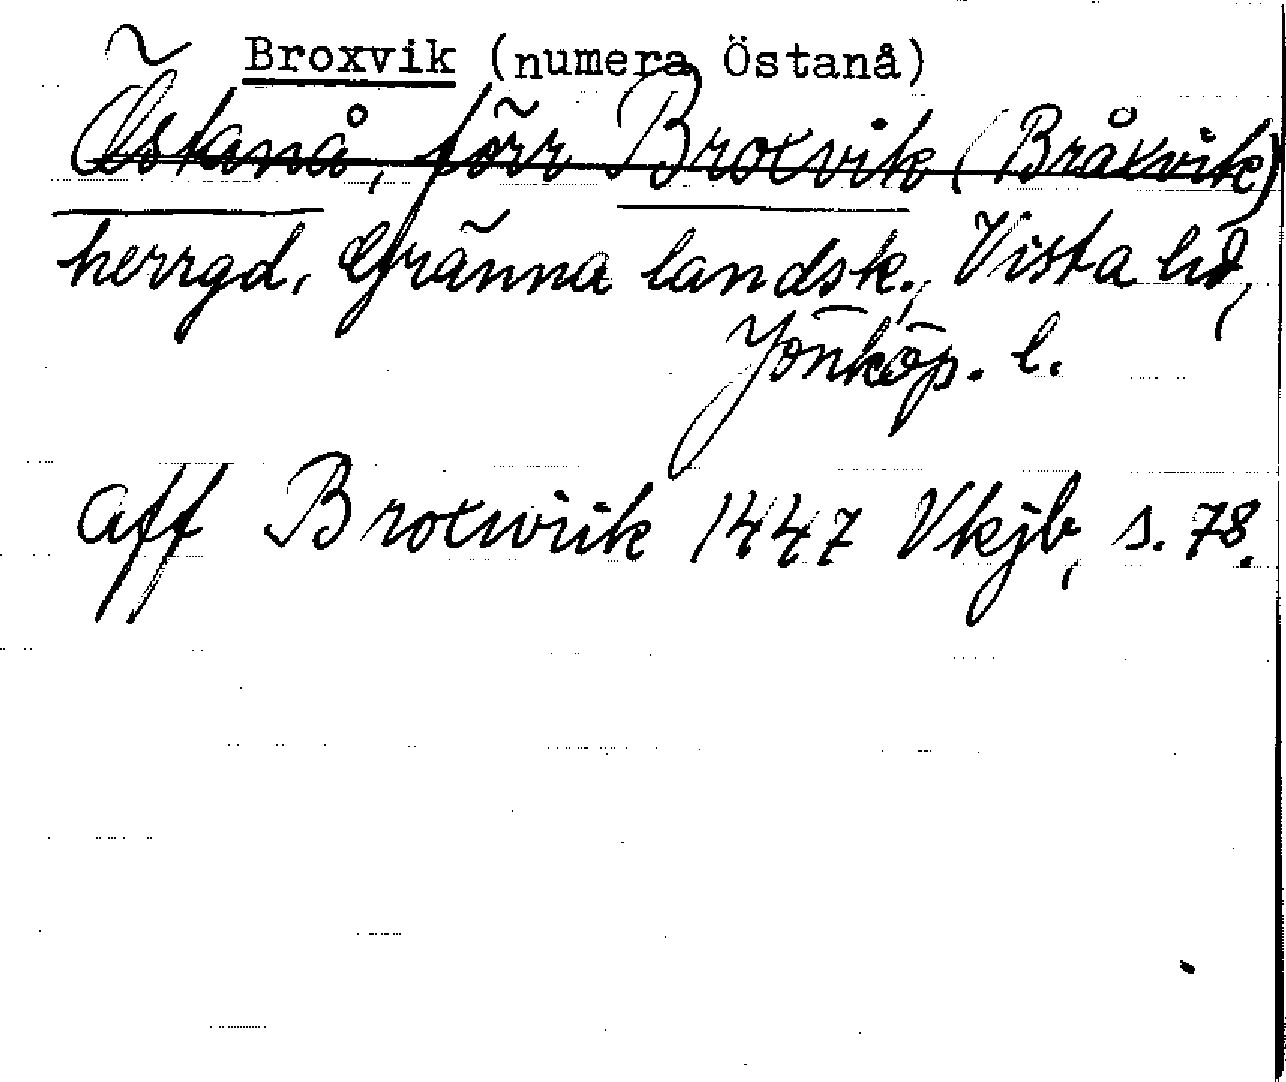 Broxvik (numera Östanå)
Östanå, förr Broxvik (Bråxvik)
herrgd, Gränna landsk., Vista hd,
Jönköp. l.
aff Broxwiik 1447 Vkjb, s. 78.